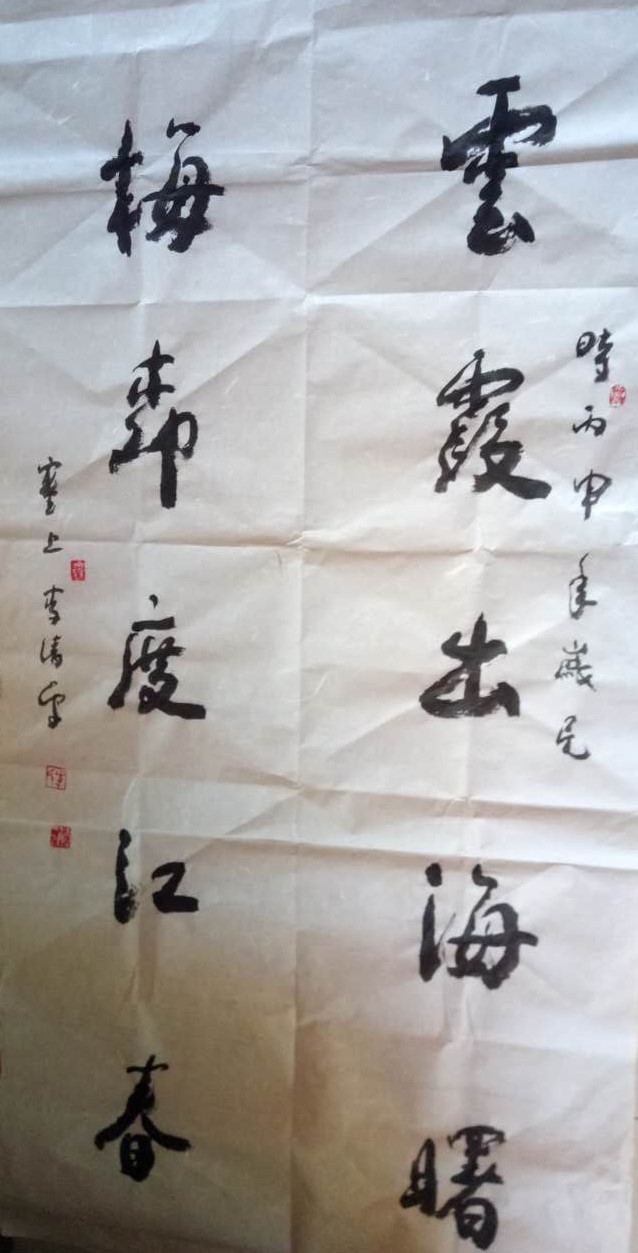 時丙申年歲
雲霞出海曙
梅柳度江春
塞上李清